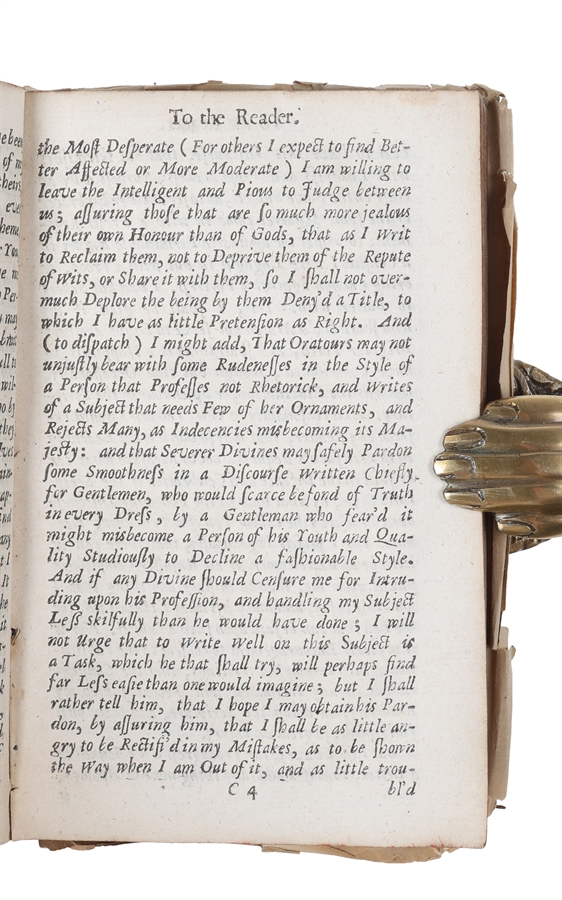 To the Reader.
the Moſt Deſperate ( For others I expect to find Bet-
ter Affected or More Moderate ) I am willing to
leave the Intelligent and Pious to Judge between
us; aſſuring thoſe that are ſo much more jealous
of their own Honour than of Gods, that as I Writ
to Reclaim them, not to Deprive them of the Repute
of Wits, or Share it with them, ſo I ſhall not over-
much Deplore the being by them Deny'd a Title, to
which I have as little Pretenſion as Right. And
( to diſpatch ) I might add, That Oratours may not
unjuſtly bear with ſome Rudeneſſes in the Style of
a Perſon that Profeſſes not Rhetorick, and Writes
of a Subject that needs Few of her Ornaments, and
Rejects Many, as Indecencies misbecoming its Ma-
jeſty: and that Severer Divines may ſafely Pardon
ſome Smoothneſs in a Diſcourſe Written Chiefly
for Gentlemen, who would ſcarce be fond of Truth
in every Dreſs, by a Gentleman who fear'd it
might misbecome a Perſon of his Youth and Qua-
lity Studiouſly to Decline a faſhionable Style.
And if any Divine ſhould Cenſure me for Intru-
ding upon his Profeſſion, and handling my Subject
Leſſ skilfully than he would have done; I will
not Urge that to Write Well on this Subject is
a Task, which he that ſhall try, will perhaps find
far Leſs eaſie than one would imagine; but I ſhall
rather tell him, that I hope I may obtain his Par-
don, by aſſuring him, that I ſhall be as little an-
gry to be Rectifi'd in my Miſtakes, as to be ſhown
the Way when I am Out of it, and as little trou-
C 4 bl'd